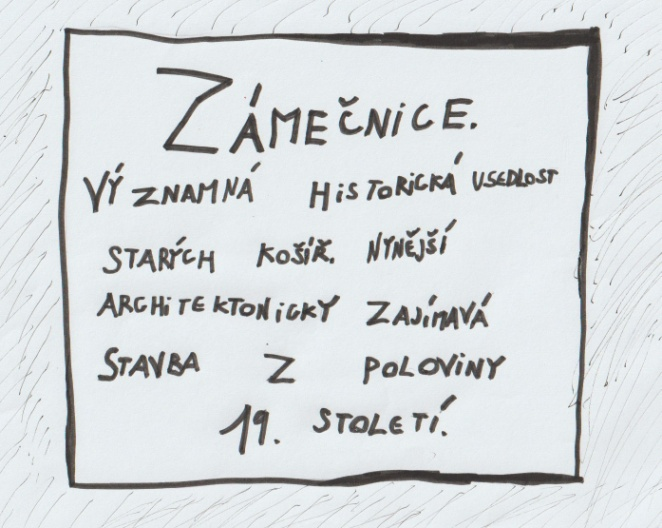 ZÁMEČNICE.
VÝZNAMNÁ HISTORICKÁ USEDLOST
STARÝCH KOŠÍŘ. NYNĚJŠÍ
ARCHITEKTONICKY ZAJÍMAVÁ
STAVBA Z POLOVINY
19. STOLETÍ.